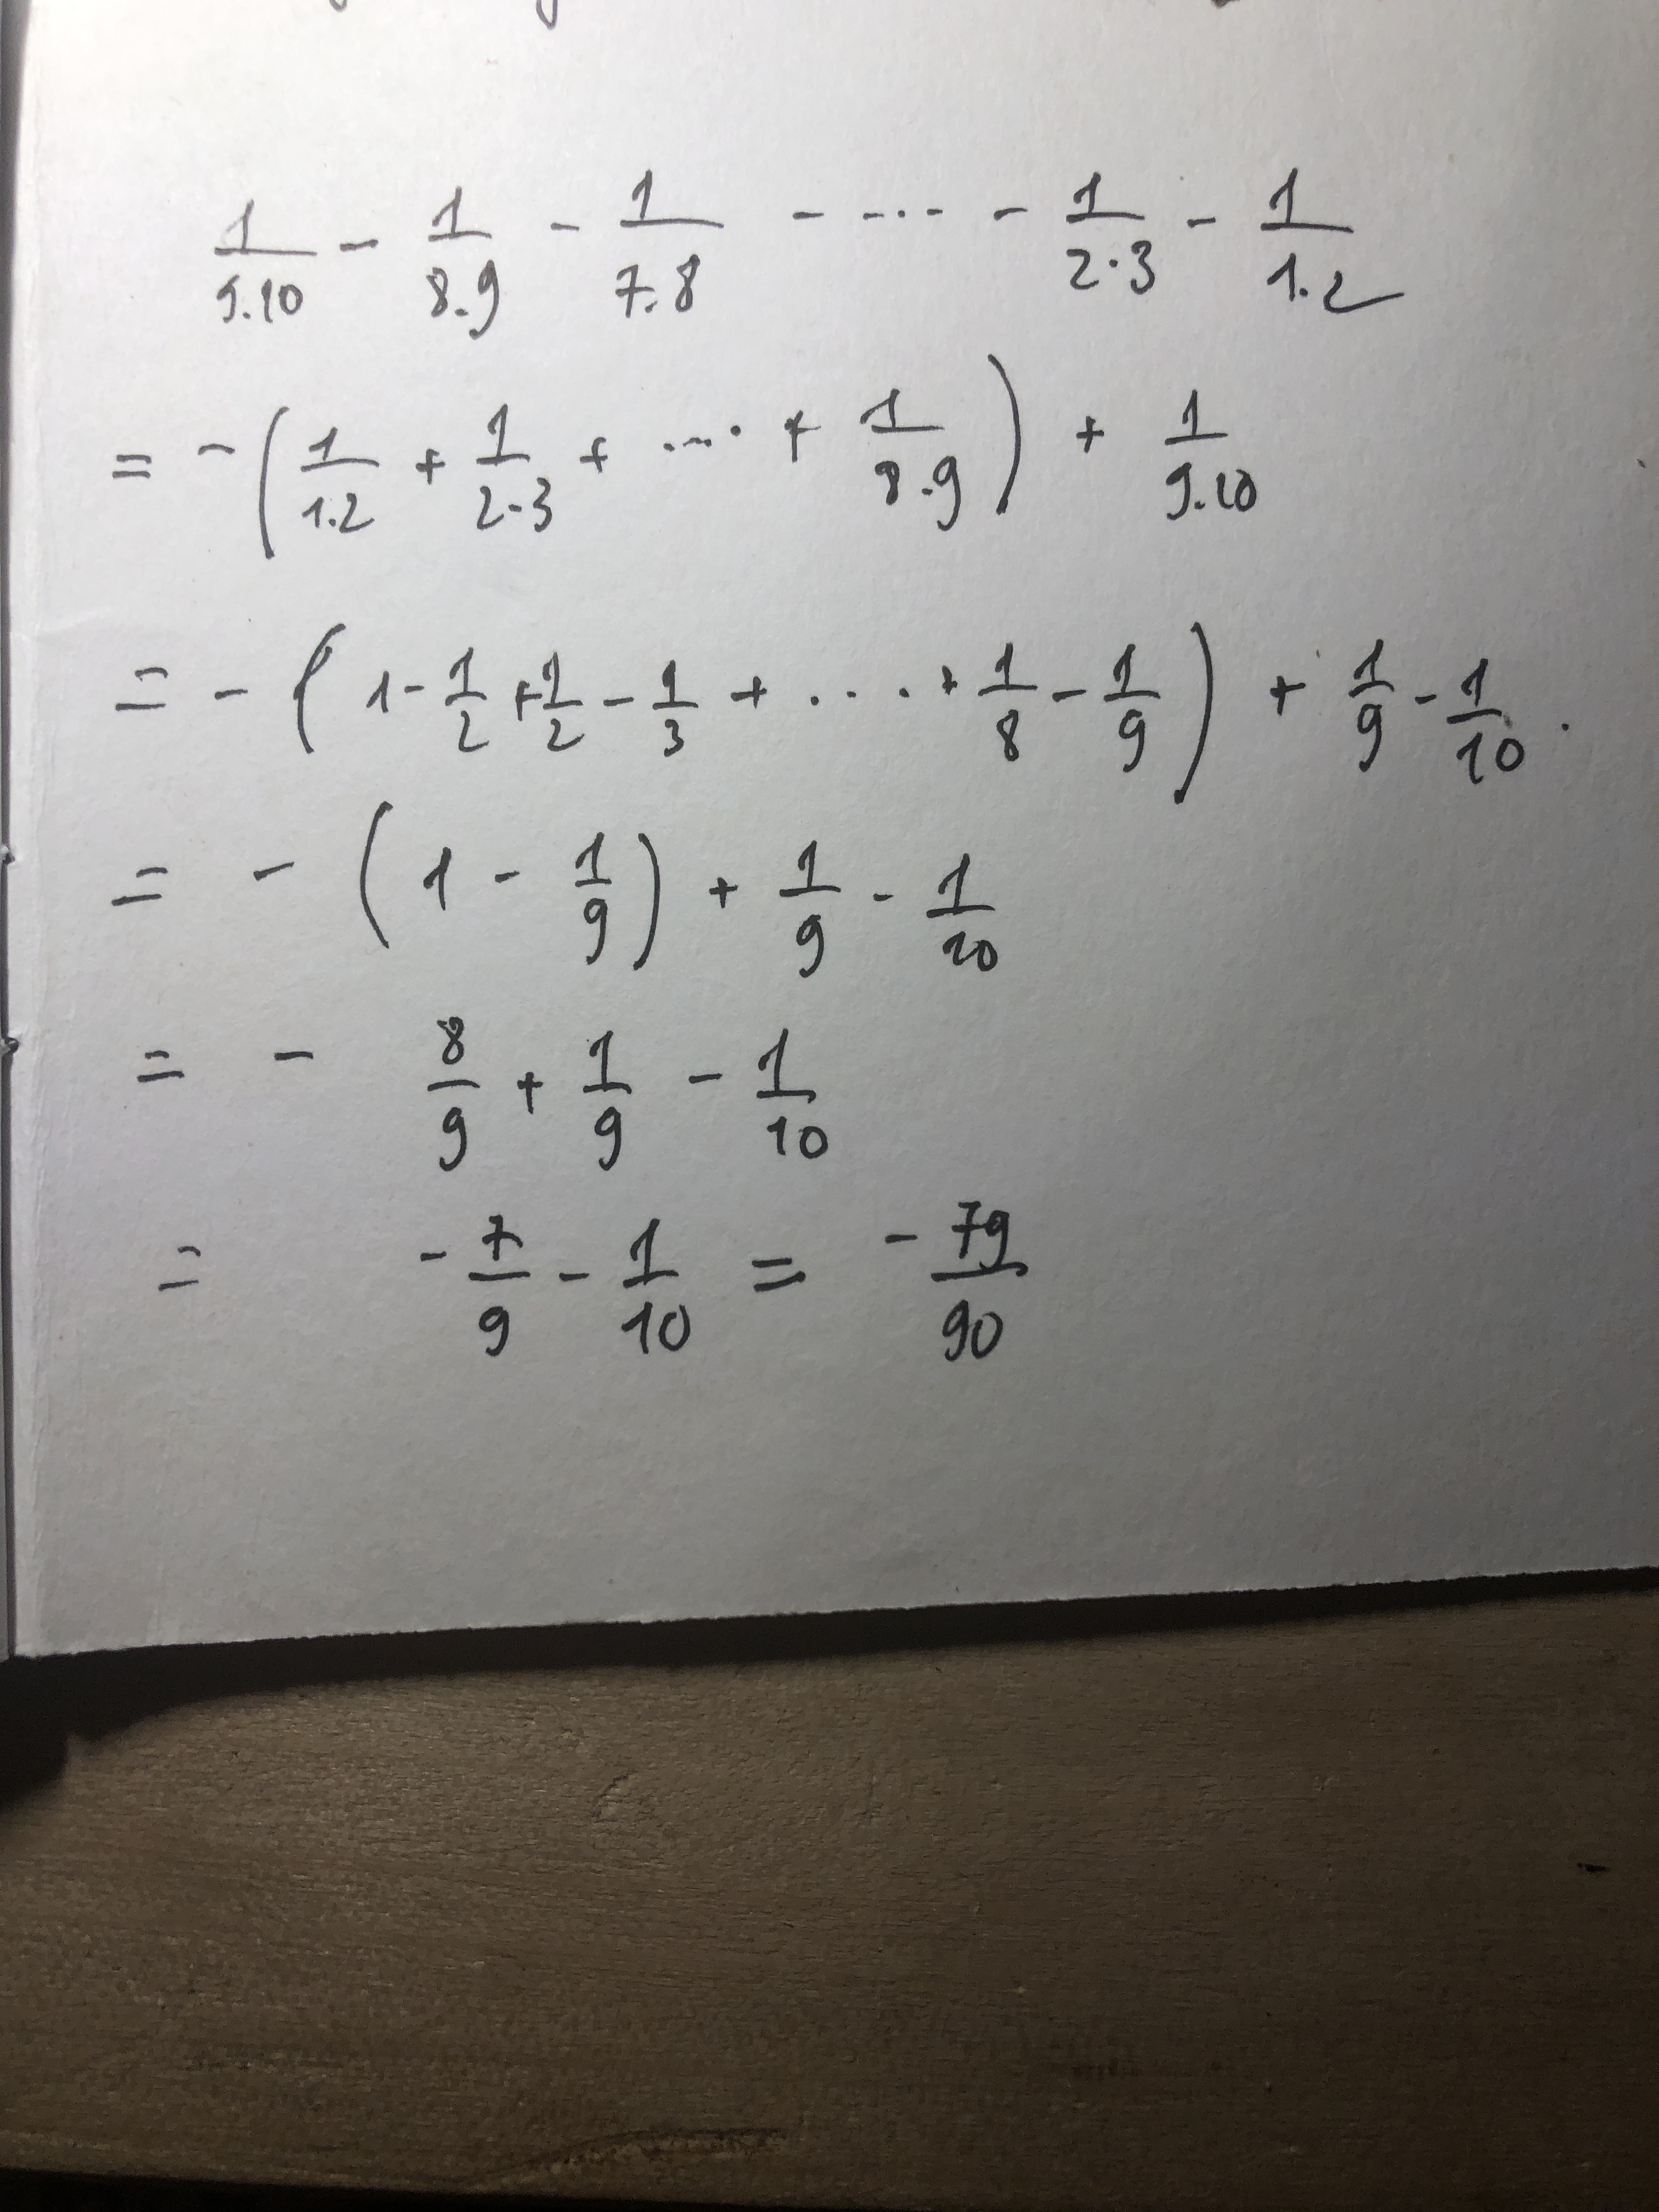 1/9.10 - 1/8.9 - 1/7.8 - .... - 1/2.3 - 1/1.2
= - (1/1.2 + 1/2.3 + .... + 1/8.9) + 1/9.10
= - (1 - 1/2 + 1/2 - 1/3 + .... + 1/8 - 1/9) + 1/9 - 1/10 .
= - (1 - 1/9) + 1/9 - 1/10
= - 8/9 + 1/9 - 1/10
= - 7/9 - 1/10 = - 79/90